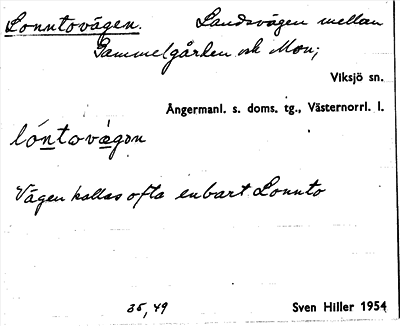 Lonntovägen. Landsvägen mellan
Gammelgården och Mon;
Viksjö sn.
Ångermanl. s. doms. tg., Västernorrl. l.
lóntovægɘn
Vägen kallas ofta enbart Lonnto
35, 49
Sven Hiller 1954